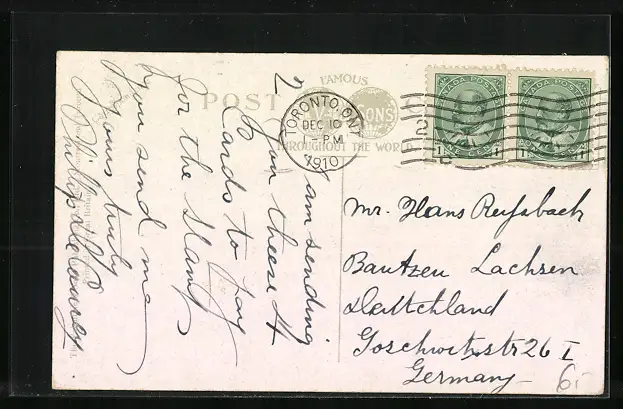 FAMOUS
POST
THROUGHOUT THE WORLD
TORONTO, ONT.
DEC 10
PM
1910
CANADA POSTAGE
ONE CENT
CANADA POSTAGE
2
I am sending
you these 4
Cards to pay
for the Stamps
you send me
Yours truly
Mr. Hans
Bautzen Lachsen
Goschwitzstr 26 I
Germany
6-